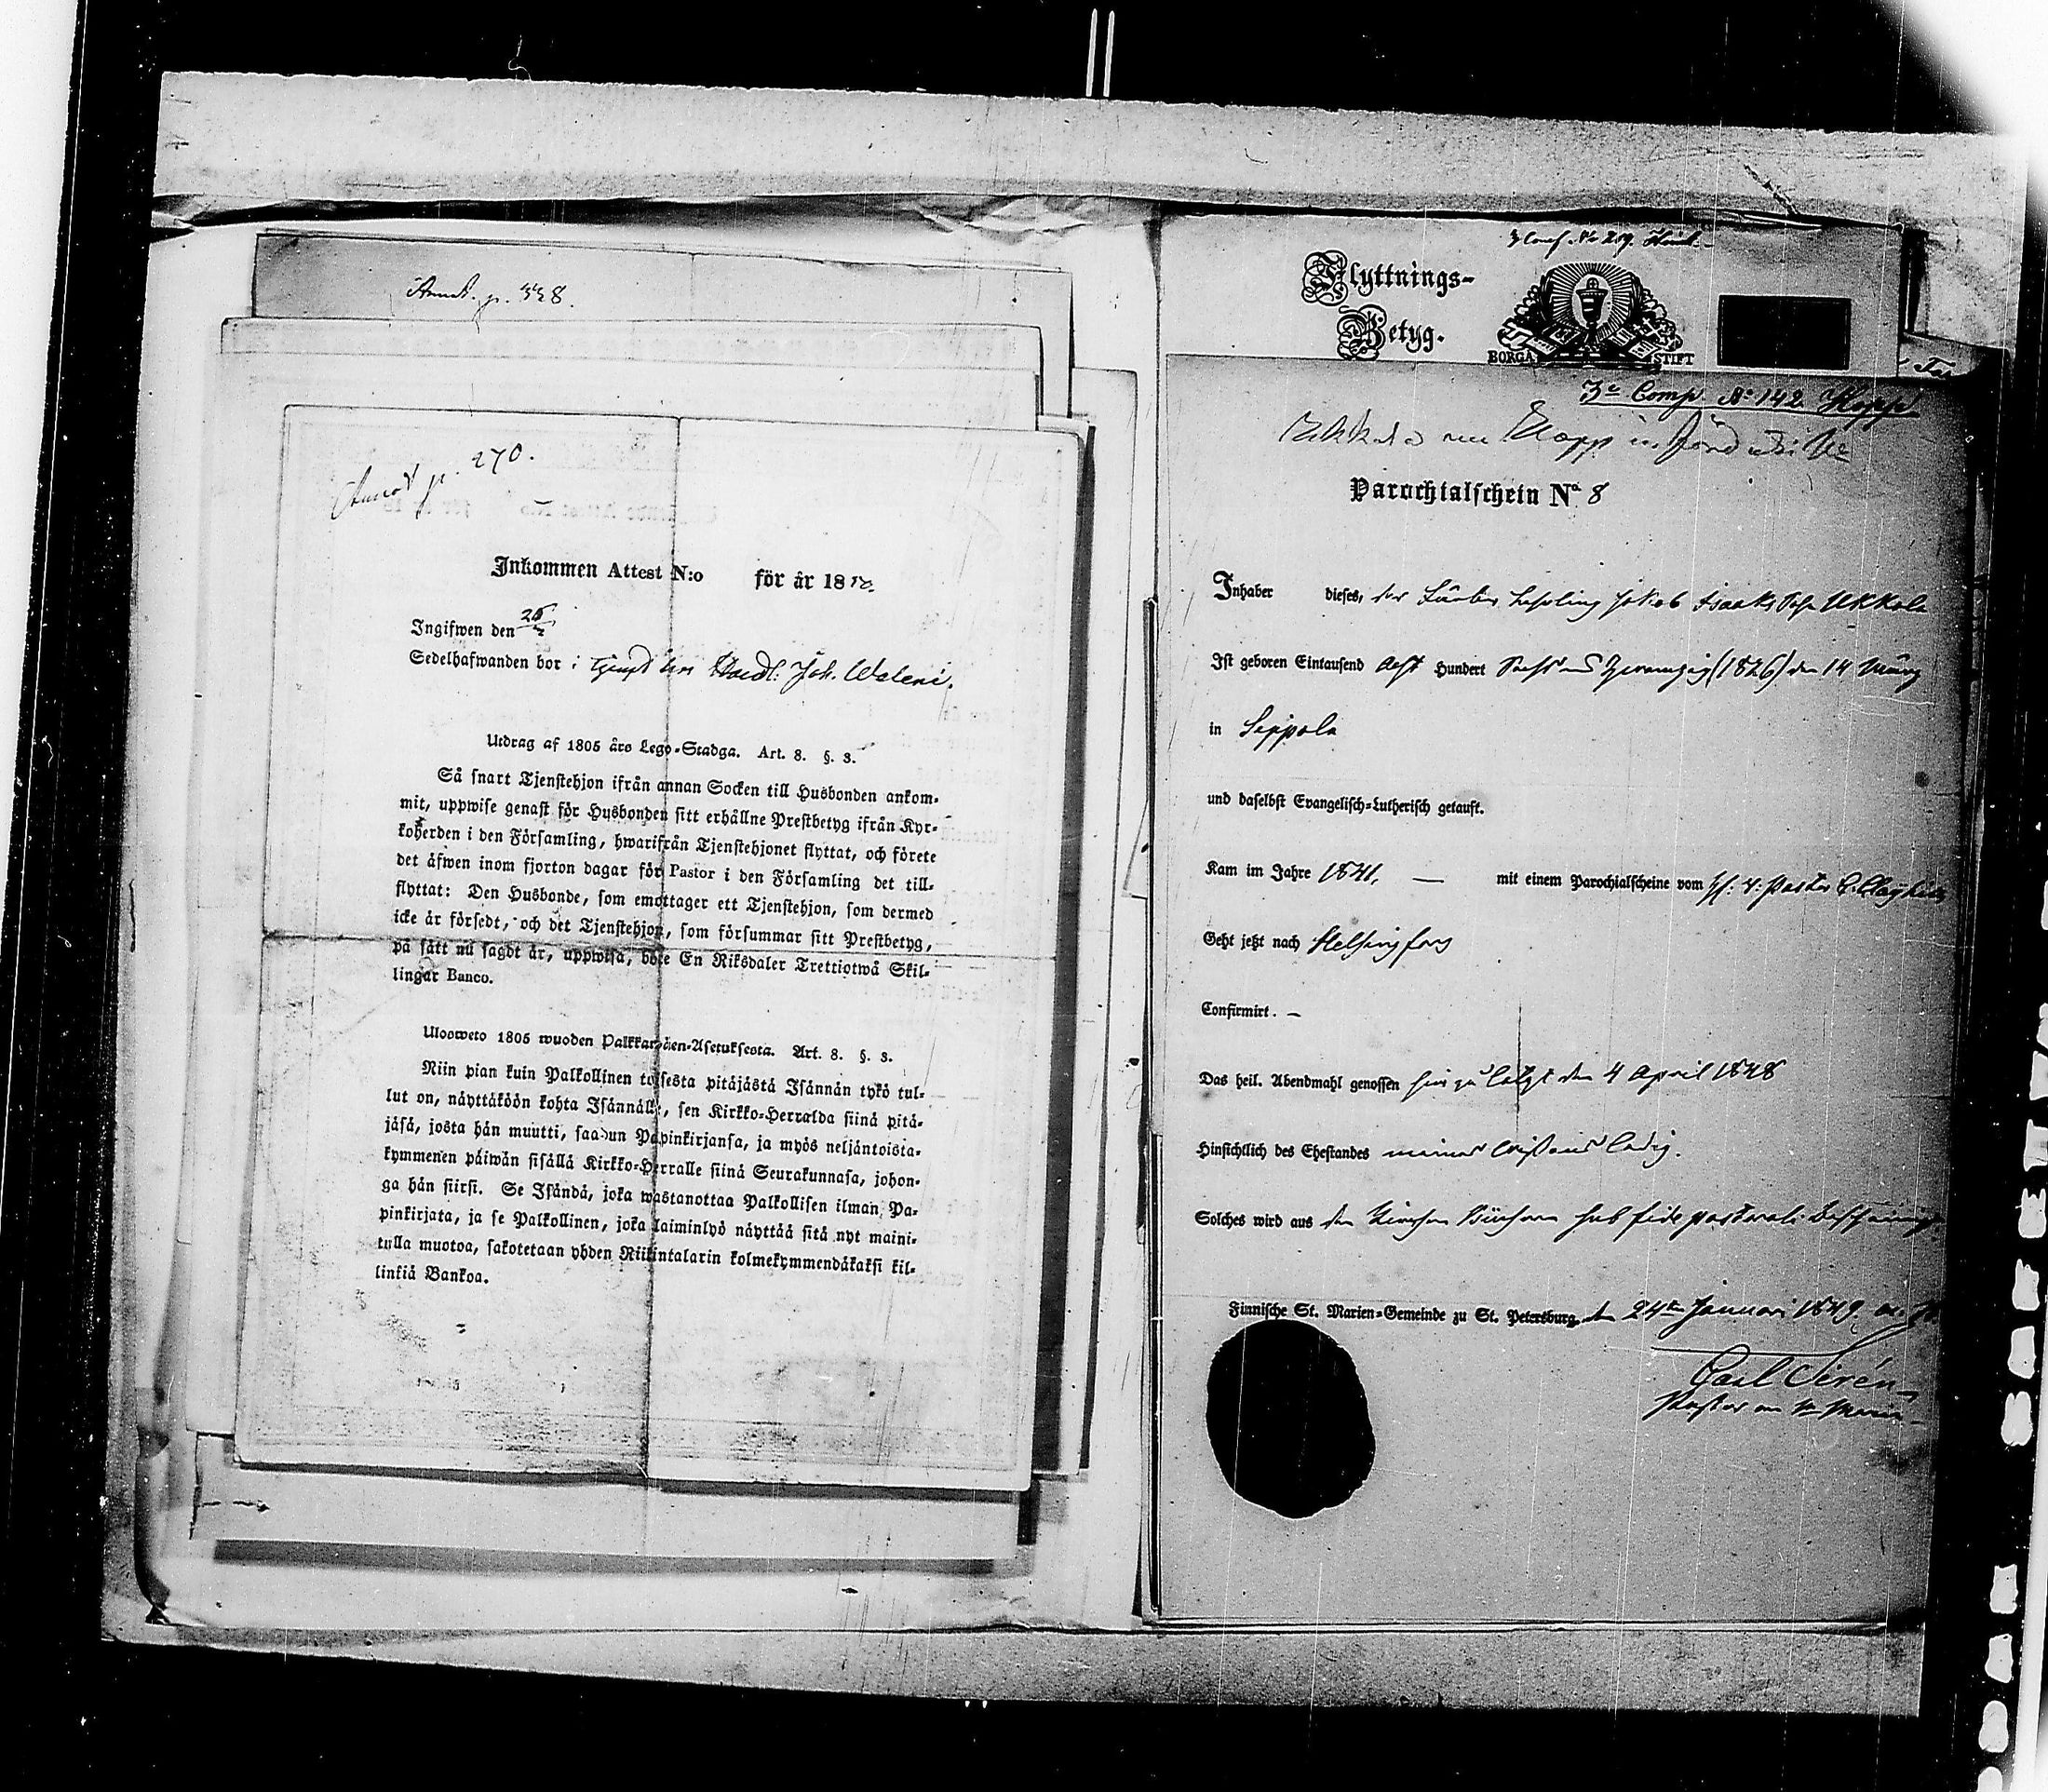 Annot. p. 338.
Annot p. 270.
Inkommen Attest N:o för år 1850.
Ingifwen den 26/2
Sedelhafwanden bor i tjenst hos Handl: Joh. Waleni.
Utdrag af 1805 års Lego-Stadga. Art. 8. §. 3.
Så snart Tjenstehjon ifrån annan Socken till Husbonden ankom-
mit, uppwise genast för Husbonden sitt erhållne Prestbetyg ifrån Kyr-
koherden i den Församling, hwarifrån Tjenstehjonet flyttat, och förete
det äfwen inom fjorton dagar för Pastor i den Församling det till-
flyttat: Den Husbonde, som emottager ett Tjenstehjon, som dermed
icke är försedt, och det Tjenstehjon, som försummar sitt Prestbetyg,
på sätt nu sagdt är, uppwisa, böte En Riksdaler Trettiotwå Skil-
lingar Banco.
Ulosweto 1805 wuoden Palkkawäen-Asetuksesta. Art. 8. §. 3.
Niin pian kuin Palkollinen toisesta pitäjästä Isännän tykö tul-
lut on, näyttäköön kohta Isännälle, sen Kirkko-Herralda siinä pitä-
jäsä, josta hän muutti, saadun Papinkirjansa, ja myös neljäntoista-
kymmenen päiwän sisällä Kirkko-Herralle siinä Seurakunnasa, johon-
ga hän siirsi. Se Isändä, joka wastanottaa Palkollisen ilman Pa-
pinkirjata, ja se Palkollinen, joka laiminlyö näyttää sitä nyt maini-
tulla muotoa, sakotetaan yhden Riikintalarin kolmekymmendäkaksi kil-
linkiä Bankoa.
Flyttnings-
Betyg.
BORGÅ STIFT
3e Comp No 142 Kopp
Parochialschein No 8
Inhaber dieses, der Färber Lehrling Jakob Isaaks Sohn Ukkola
Ist geboren Eintausend Acht Hundert Sechs und Zwanzig (1826) den 14 März
in Seppola
und daselbst Evangelisch-Lutherisch getauft.
Kam im Jahre 1841. — mit einem Parochialscheine vom Pastor
Geht jetzt nach Helsingfors
Confirmirt. —
Das heil. Abendmahl genossen hier zu letzt den 4 April 1848
Hinsichtlich des Ehestandes meines Wissens ledig.
Solches wird aus den Kirchen Büchern sub fide pastorali bescheinigt
Finnische St. Marien-Gemeinde zu St. Petersburg, den 24ten Januari 1849.
Carl Sirén
Pastor an St Marien